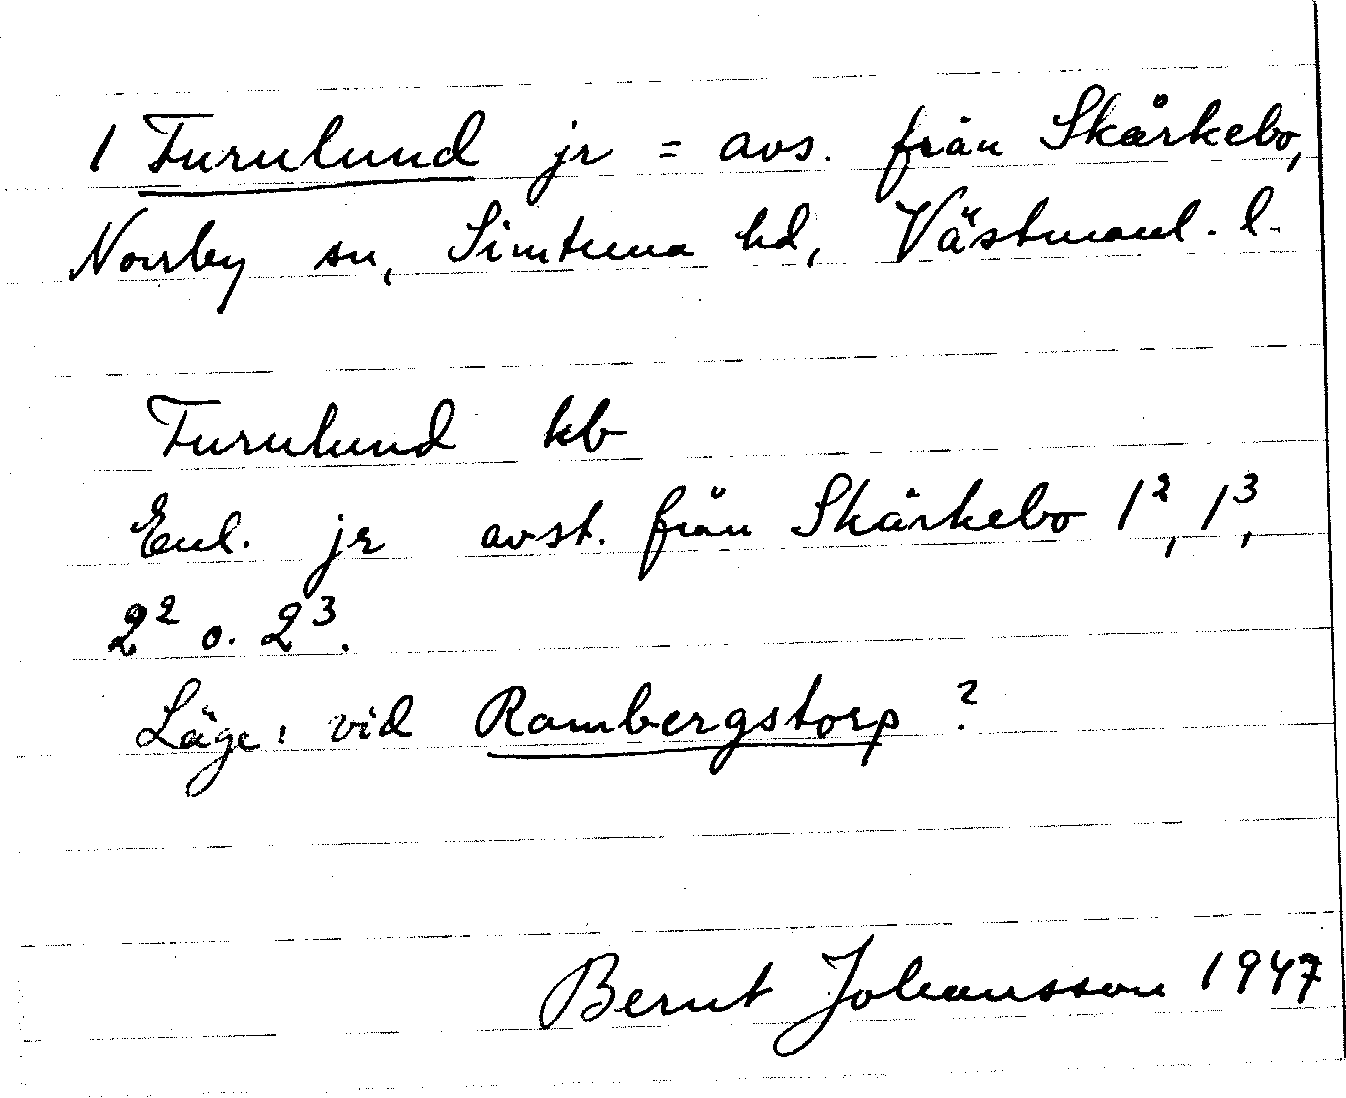 1 Furulund jr = avs. från Skärkebo,
Norrby sn, Simtuna hd, Västmanl. l.
Furulund kb
Enl. jr avst. från Skärkebo 1², 1³,
2² o. 2³.
Läge: vid Rambergstorp ?
Bernt Johansson 1947